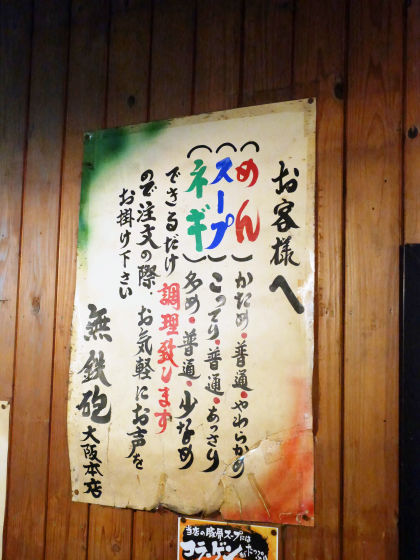 お客様へ
(めん) かため・普通・やわらかめ
(スープ) こってり・普通・あっさり
(ネギ) 多め・普通・少なめ
できるだけ調理致します
ので注文の際、お気軽にお声を
お掛け下さい
無鉄砲 大阪本店
当店の豚骨スープには
コラーゲンが